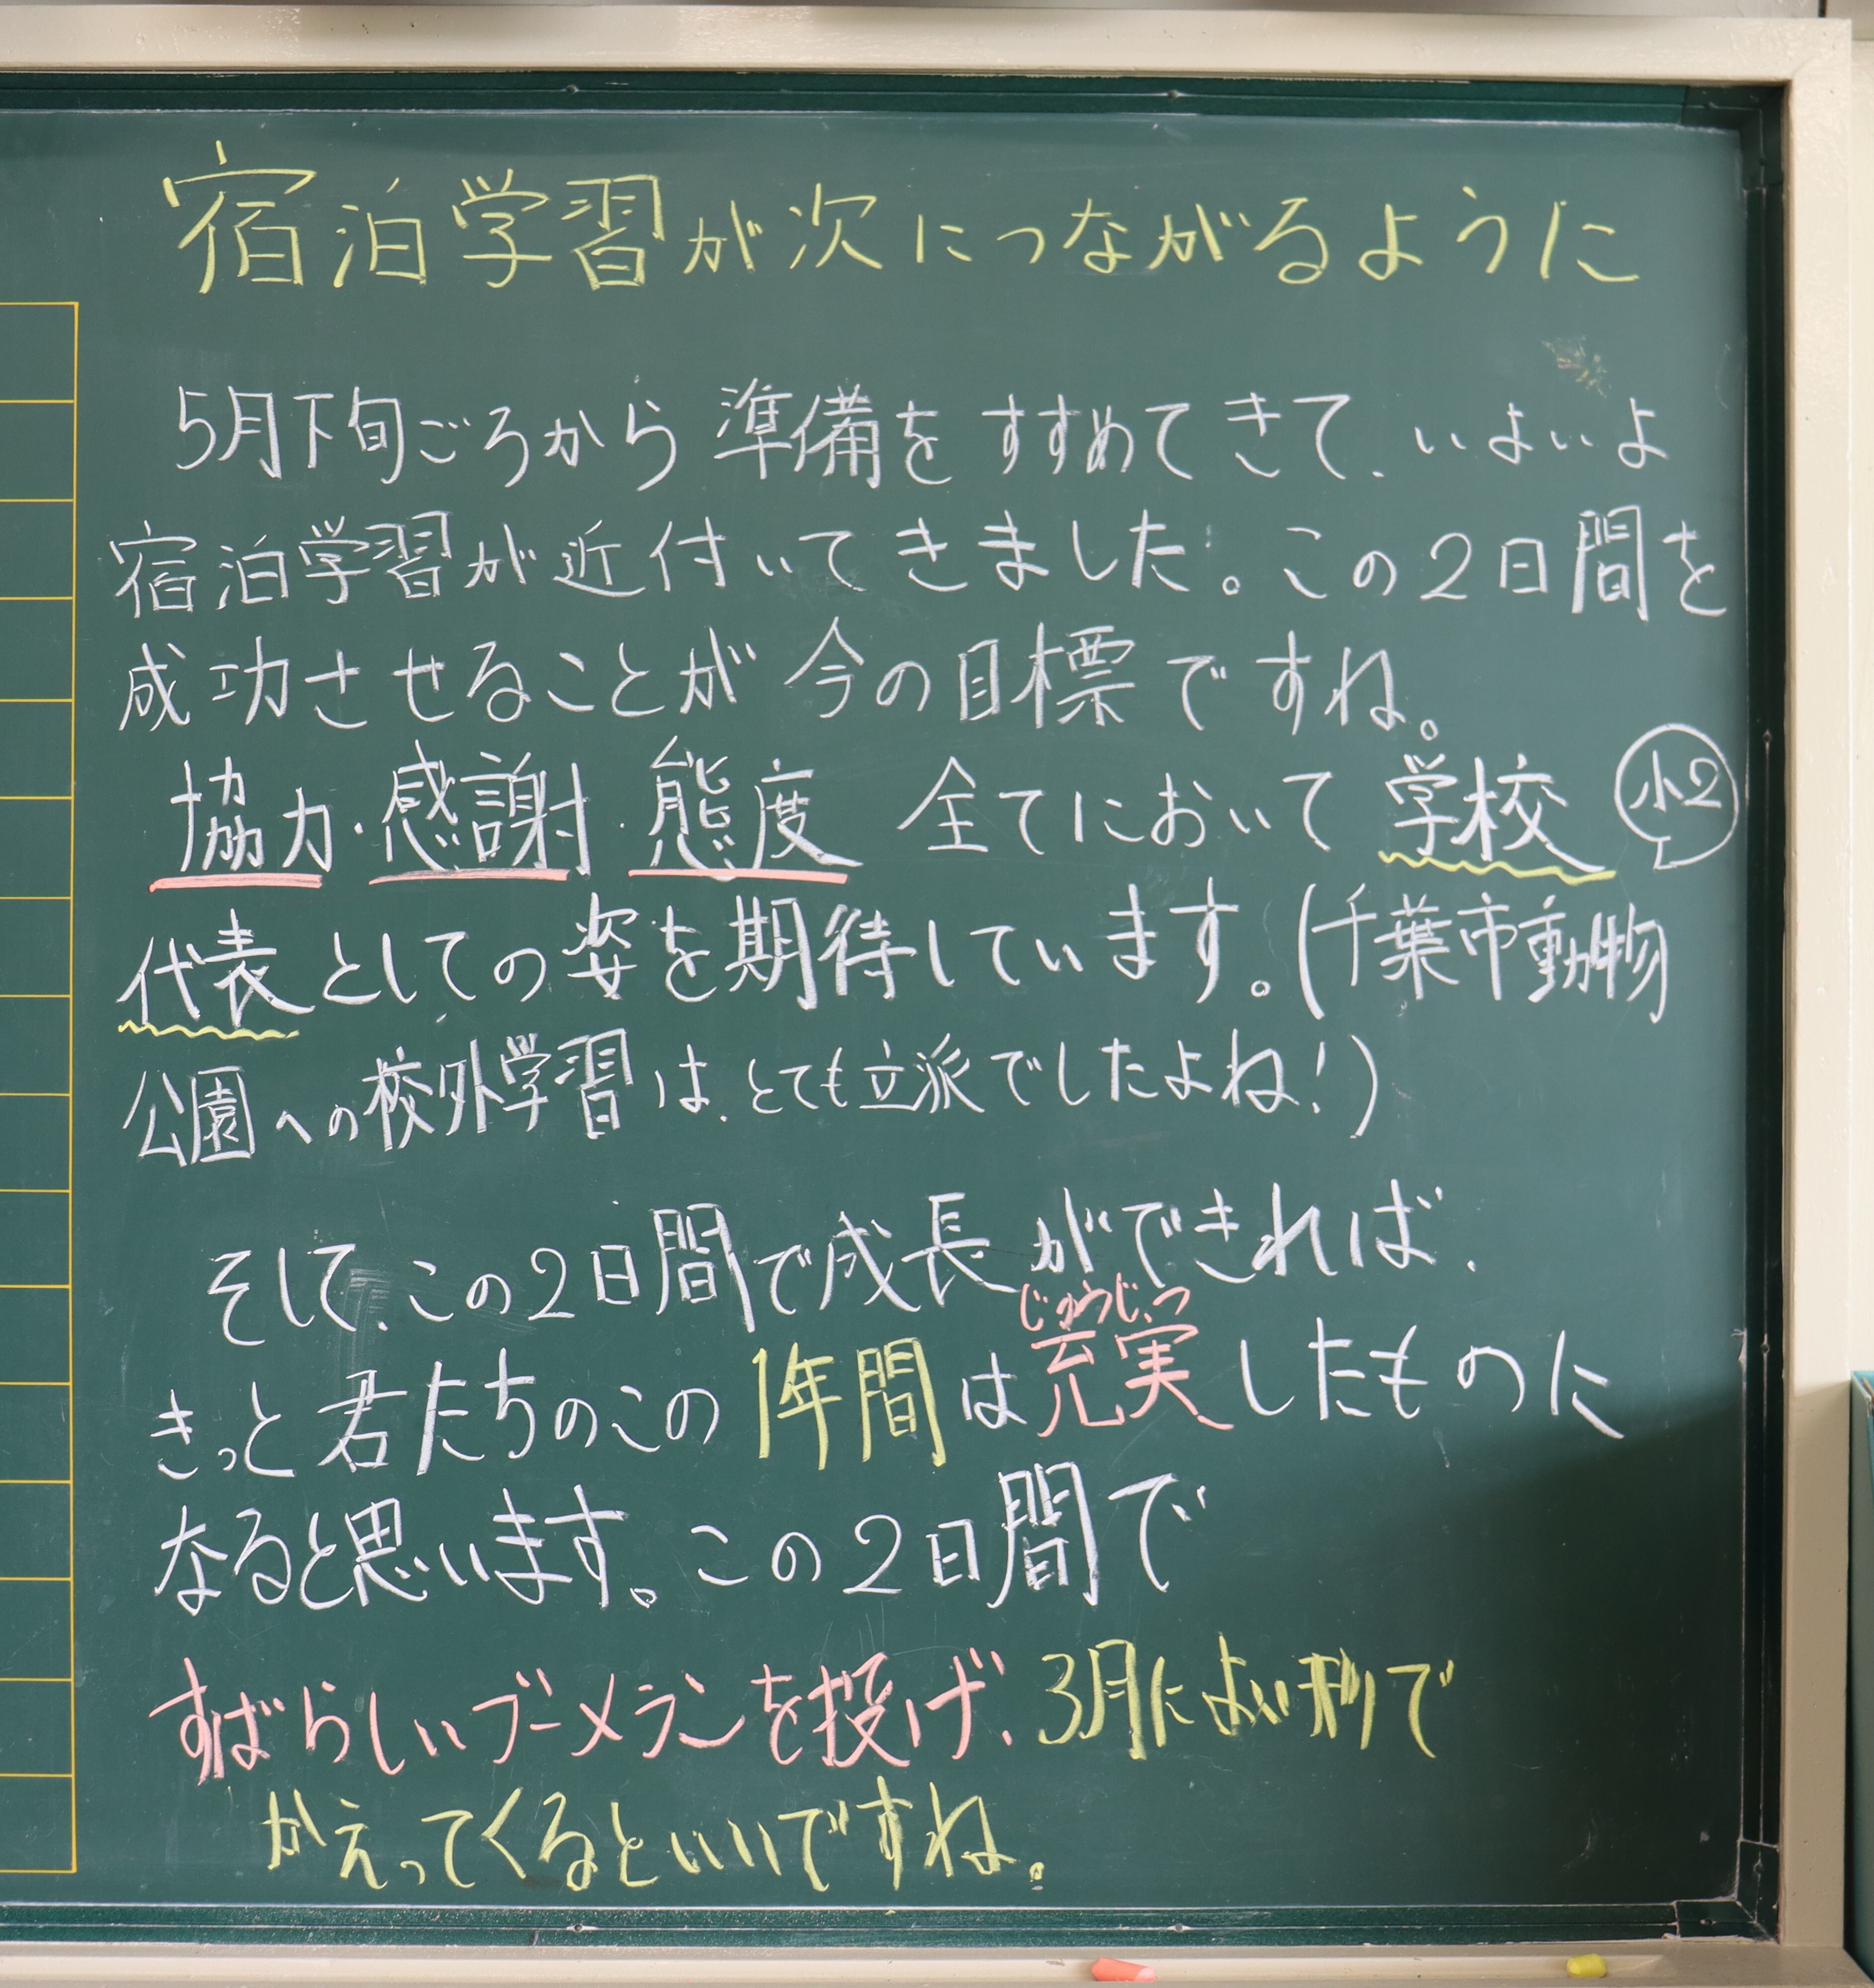 宿泊学習が次につながるように
5月下旬ごろから準備をすすめてきて、いよいよ
宿泊学習が近付いてきました。この2日間を
成功させることが今の目標ですね。
協力・感謝・態度 全てにおいて学校 小2
代表としての姿を期待しています。(千葉市動物
公園への校外学習は、とても立派でしたよね!)
そして、この2日間で成長ができれば、
じゅうじつ
きっと君たちのこの1年間は充実したものに
なると思います。この2日間で
すばらしいブーメランを投げ、3月によい形で
かえってくるといいですね。